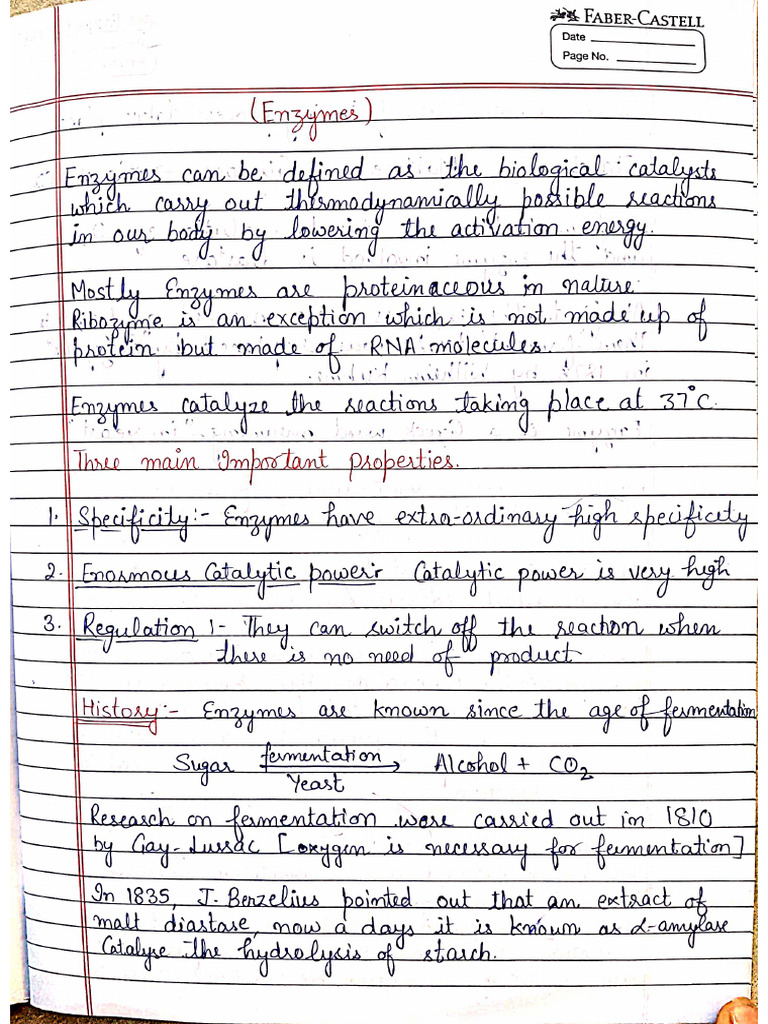 FABER-CASTELL
Date
Page No.
(Enzymes)
Enzymes can be defined as the biological catalysts
which carry out thermodynamically possible reactions
in our body by lowering the activation energy.
Mostly Enzymes are proteinaceous in nature
Ribozyme is an exception which is not made up of
protein but made of RNA molecules.
Enzymes catalyze the reactions taking place at 37°C.
Three main Important Properties.
1. Specificity:- Enzymes have extra-ordinary high specificity
2. Enormous Catalytic power:- Catalytic power is very high
3. Regulation :- They can switch off the reaction when
there is no need of product
History:- Enzymes are known since the age of fermentation
Sugar fermentation Yeast → Alcohol + CO₂
Research on fermentation were carried out in 1810
by Gay-Lussac [oxygen is necessary for fermentation]
In 1835, J. Berzelius pointed out that an extract of
malt diastase, now a days it is known as α-amylase
Catalyse the hydrolysis of starch.